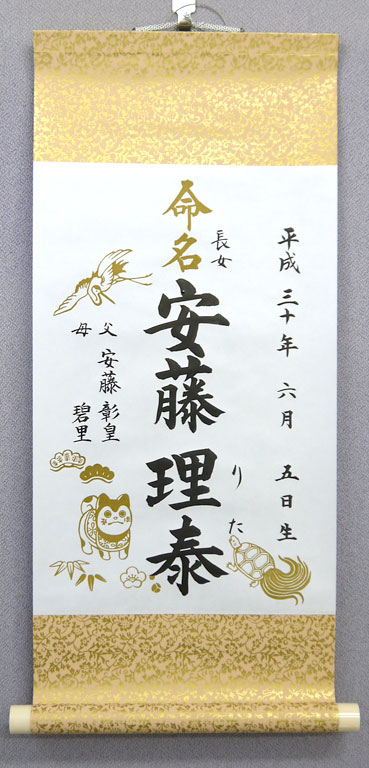 平成三十年六月五日生
命名
長女
安藤理泰
りた
父 安藤彰皇
母 碧里